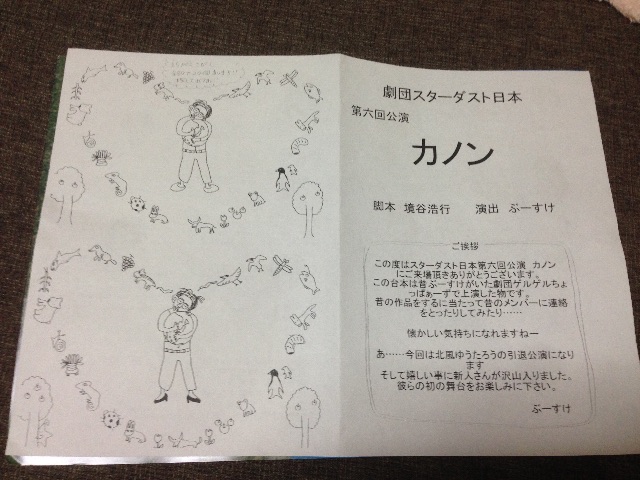 劇団スターダスト日本
第六回公演
カノン
脚本 境谷浩行 演出 ぶーすけ
ご挨拶
この度はスターダスト日本第六回公演 カノン
にご来場頂きありがとうございます。
この台本は昔ぶーすけがいた劇団ゲルゲルちょ
っぱぁーずで上演した物です。
昔の作品をするに当たって昔のメンバーに連絡
をとったりしてみたり……
懐かしい気持ちになれますねー
あ……今回は北風ゆうたろうの引退公演になり
ます
そして嬉しい事に新人さんが沢山入りました。
彼らの初の舞台をお楽しみに下さい。
ぶーすけ